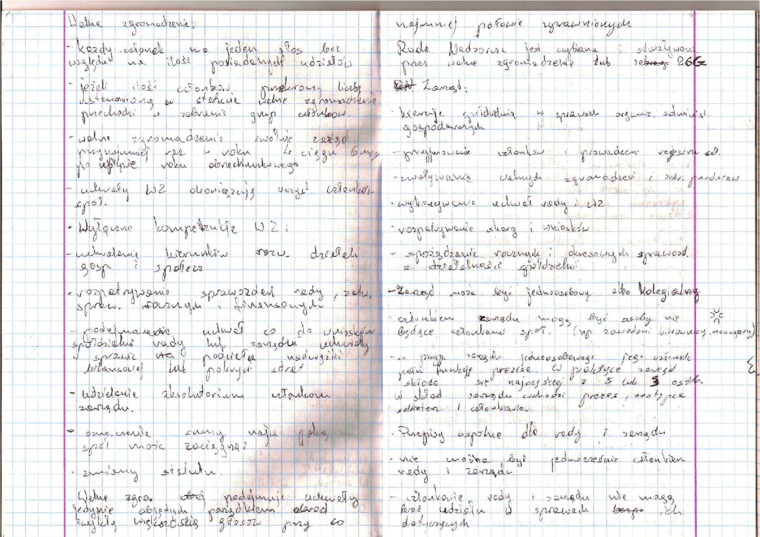 Walne zgromadzenie:
- Każdy członek ma jeden głos bez
względu na ilość posiadanych udziałów
- jeżeli ilość członków przekroczy liczbę
ustanowioną w statucie walne zgromadzenie
przechodzi w zebrania grup członków.
- walne zgromadzenie zwołuje zarząd
przynajmniej raz w roku w ciągu 6 mcy
po upływie roku obrachunkowego
- uchwały WZ obowiązują wszyst. członków
spół.
- Wyłączne kompetencje WZ:
- uchwalanie kierunków rozw. działaln
gosp i społecz
- rozpatrywanie sprawozdań rady, zatw.
spraw. rocznych i finansowych
- podejmowanie uchwał co do wniosków
spółdzielni rady lub zarządu uchwały
w sprawie podziału nadwyżki
bilansowej lub pokrycia strat
- udzielanie absolutorium członkom
zarządu.
- oznaczenie sumy najw jaką
spół może zaciągnąć
- zmiany statutu.
Walne zgrom podejmuje uchwały
jedynie objętych porządkiem obrad
zwykłą większością głosów przy co
najmniej połowie uprawnionych
Rada Nadzorcza jest wybierana i odwoływana
przez walne zgromadzenie lub ZGC
Zarząd:
- kieruje spółdzielnią w sprawach organiz. administ.
gospodarczych
- przyjmowanie członków i prowadzen rejestru czł.
- zwoływanie walnych zgromadzeń i zebr. przedstaw
- wykonywanie uchwał rady i WZ
- rozpatrywanie skarg i wniosków
- sporządzanie rocznych i okresowych sprawozd.
z działalności spółdzielni
- Zarząd może być jednoosobowy albo kolegialny
- członkiem zarządu mogą być osoby nie
będące członkami spół. (np zawodowi kierownicy, menagerowie)
- w przyp. zarządu jednoosobowego jego członek
pełni funkcję prezesa. W praktyce zarząd
składa się najczęściej z 5 lub 3 osób.
W skład zarządu wchodzi prezes, zastępca
sekretarz i członkowie.
- Przepisy wspólne dla rady i zarządu
- nie można być jednocześnie członkiem
rady i zarządu.
- członkowie rady i zarządu nie mogą
brać udziału w sprawach ich
dotyczących